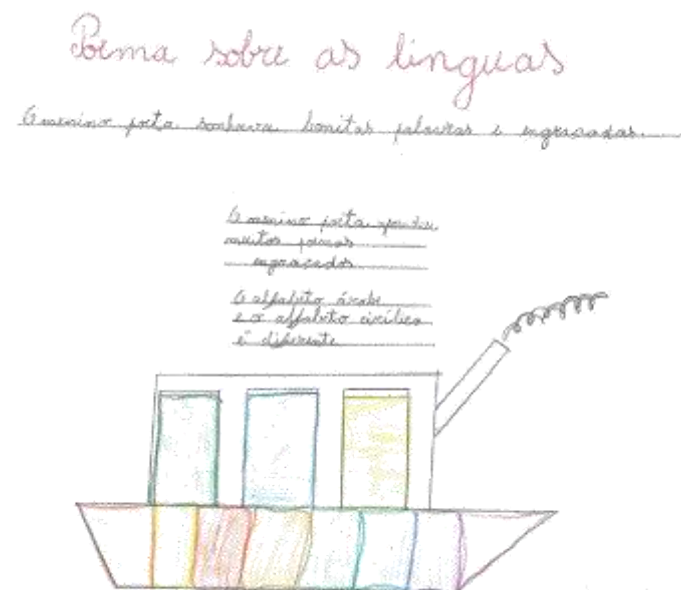 Poema sobre as linguas
O menino poeta sonhava bonitas palavras e engraçadas.
O menino poeta aprendeu
muitos poemas
engraçados
O alfabeto árabe
e o alfabeto cirílico
é diferente